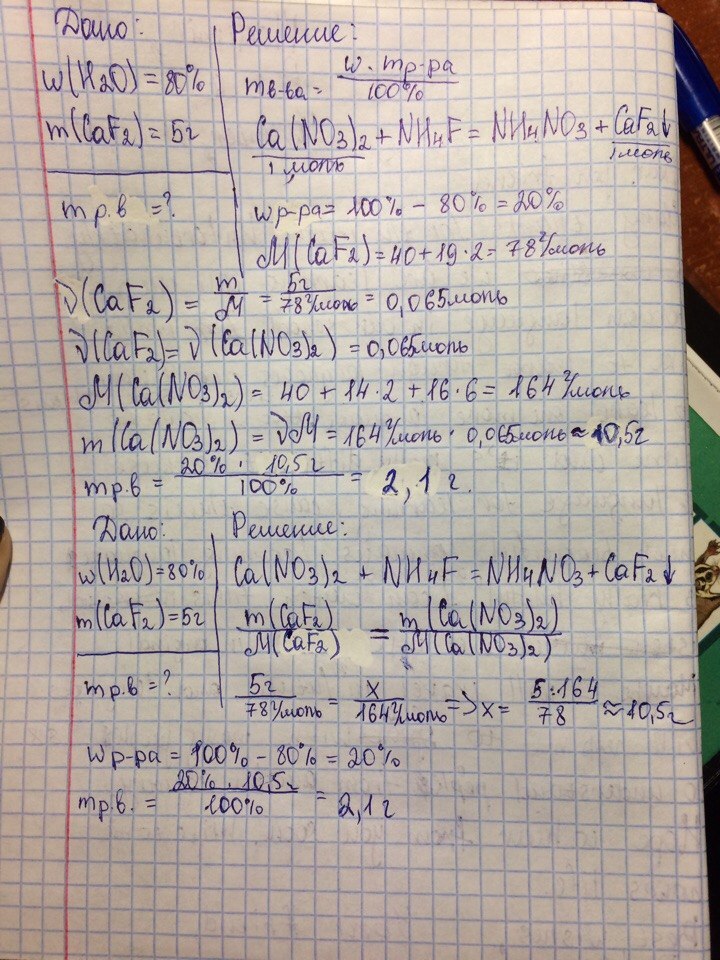 Дано:
Решение:
w(H2O) = 80%
m(CaF2) = 5г
mв-ва = w · mр-ра / 100%
Ca(NO3)2 + NH4F = NH4NO3 + CaF2↓
1 моль 1 моль
mр.в = ?
wр-ра = 100% - 80% = 20%
M(CaF2) = 40 + 19 · 2 = 78 г/моль
ν(CaF2) = m / M = 5г / 78 г/моль = 0,065моль
ν(CaF2) = ν(Ca(NO3)2) = 0,065моль
M(Ca(NO3)2) = 40 + 14 · 2 + 16 · 6 = 164 г/моль
m(Ca(NO3)2) = νM = 164 г/моль · 0,065моль ≈ 10,5г
mр.в = 20% · 10,5г / 100% = 2,1 г.
Дано:
Решение:
w(H2O) = 80%
m(CaF2) = 5г
Ca(NO3)2 + NH4F = NH4NO3 + CaF2↓
m(CaF2) / M(CaF2) = m(Ca(NO3)2) / M(Ca(NO3)2)
mр.в = ?
5г / 78 г/моль = x / 164 г/моль => x = 5 · 164 / 78 ≈ 10,5г
wр-ра = 100% - 80% = 20%
mр.в. = 20% · 10,5г / 100% = 2,1 г